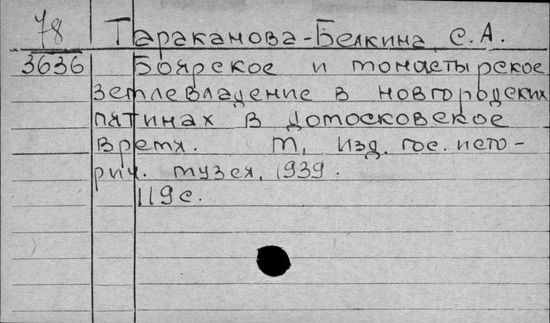 78 Тараканова-Белкина, С.А.
3636 Боярское и монастырское
землевладение в новгородских
пятинах в домосковское
время. М, Изд. гос. исто-
рич. музея, 1939.
119 с.